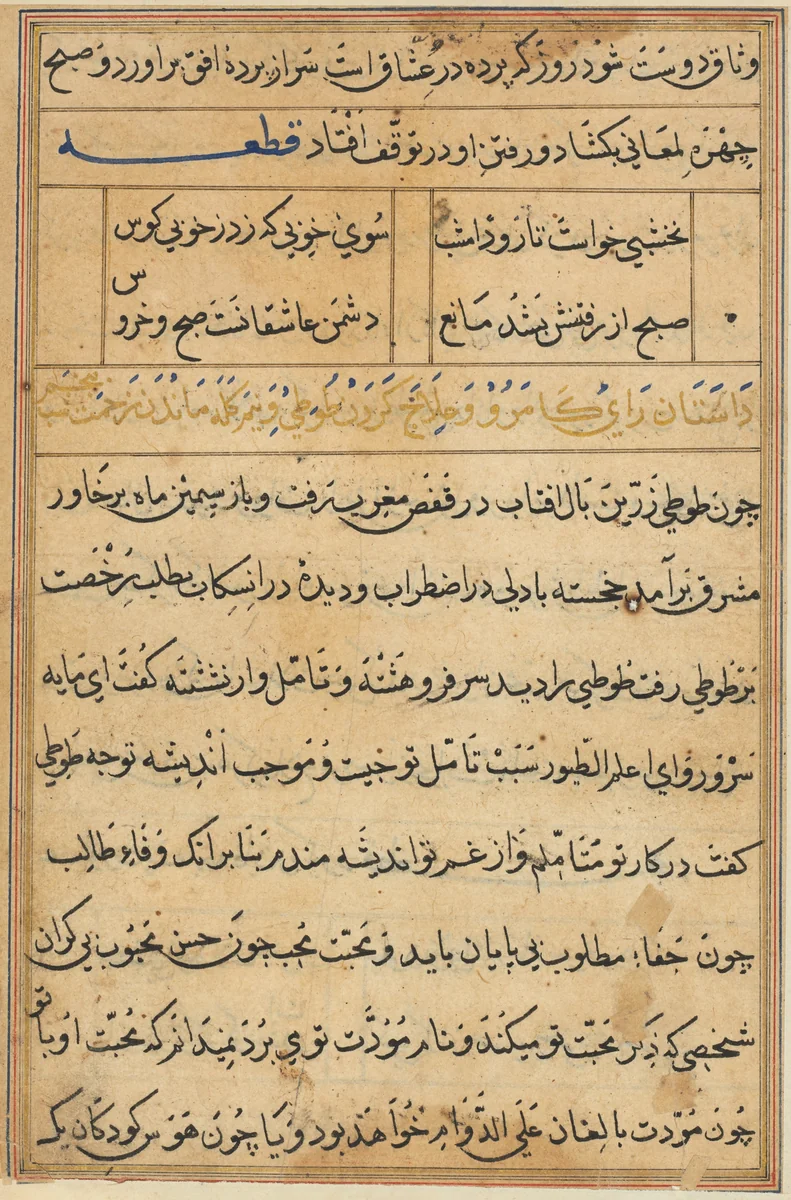 وثاق دوست شود روز که پرده در عشاق است سر از پردهٔ افق براورد و صبح
چهره لمعانی بکشاد و رفتن او در توقف افتاد قطعه
نخشبی خواست تا رود امشب سوی خوبی که زد ز خوبی کوس
صبح از رفتنش بشد مانع دشمن عاشقانست صبح و خروس
داستان رای کامرو و نکاح کردن طوطی و نیم کله ماندن
چون طوطی زرین بال افتاب در قفص مغرب رفت و باز سیمین ماه بر خاور
مشرق برآمد خجسته با دلی در اضطراب و دیدهٔ در انسکاب بطلب رخصت
بر طوطی رفت طوطی را دید سر فرو هشته و تامل وار نشسته کفت ای مایه
سرور و ای اعلم الطیور سبب تامل تو چیست و موجب اندیشه توجه طوطی
کفت در کار تو متاملم و از غم تو اندیشه مندم بنا بر انک وفاء طالب
چون جفاء مطلوب بی پایان باید و محبت محب چون حسن محبوب بی کران
شخصی که ذکر محبت تو میکند و نام مودت تو می برد نمیدانم که محبت او با تو
چون مودت بالغان علی الدوام خواهذ بود و یا چون هوس کودکان یک